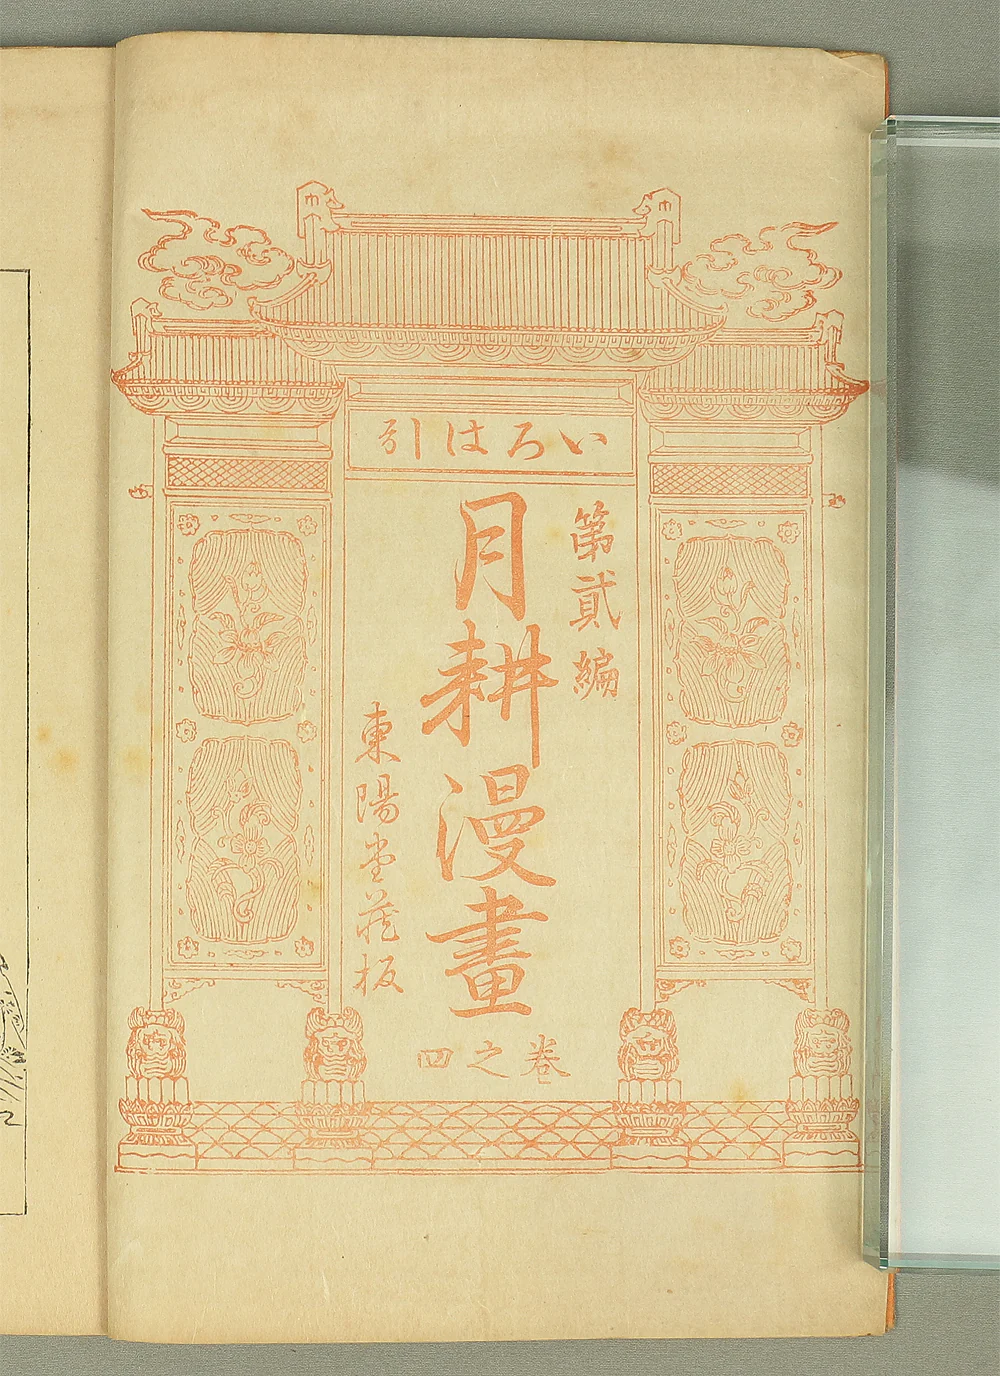 いろは引
第貳編
月耕漫畫
東陽堂藏板
卷之四